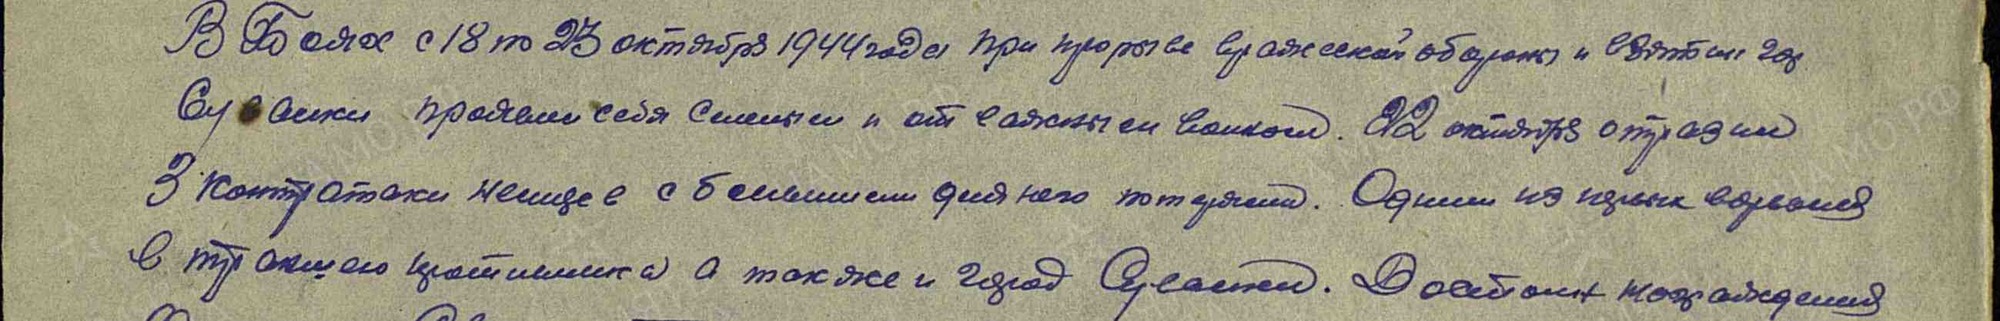 В Боях с 18 по 23 октября 1944 года при прорыве вражеской обороны и взятии гор
Сувалки проявил себя смелым и отважным воином. 22 октября отразил
3 контратаки немцев с большими для него потерями. Одним из первых ворвался
в траншею противника а также и город Сувалки. Достоин награждения